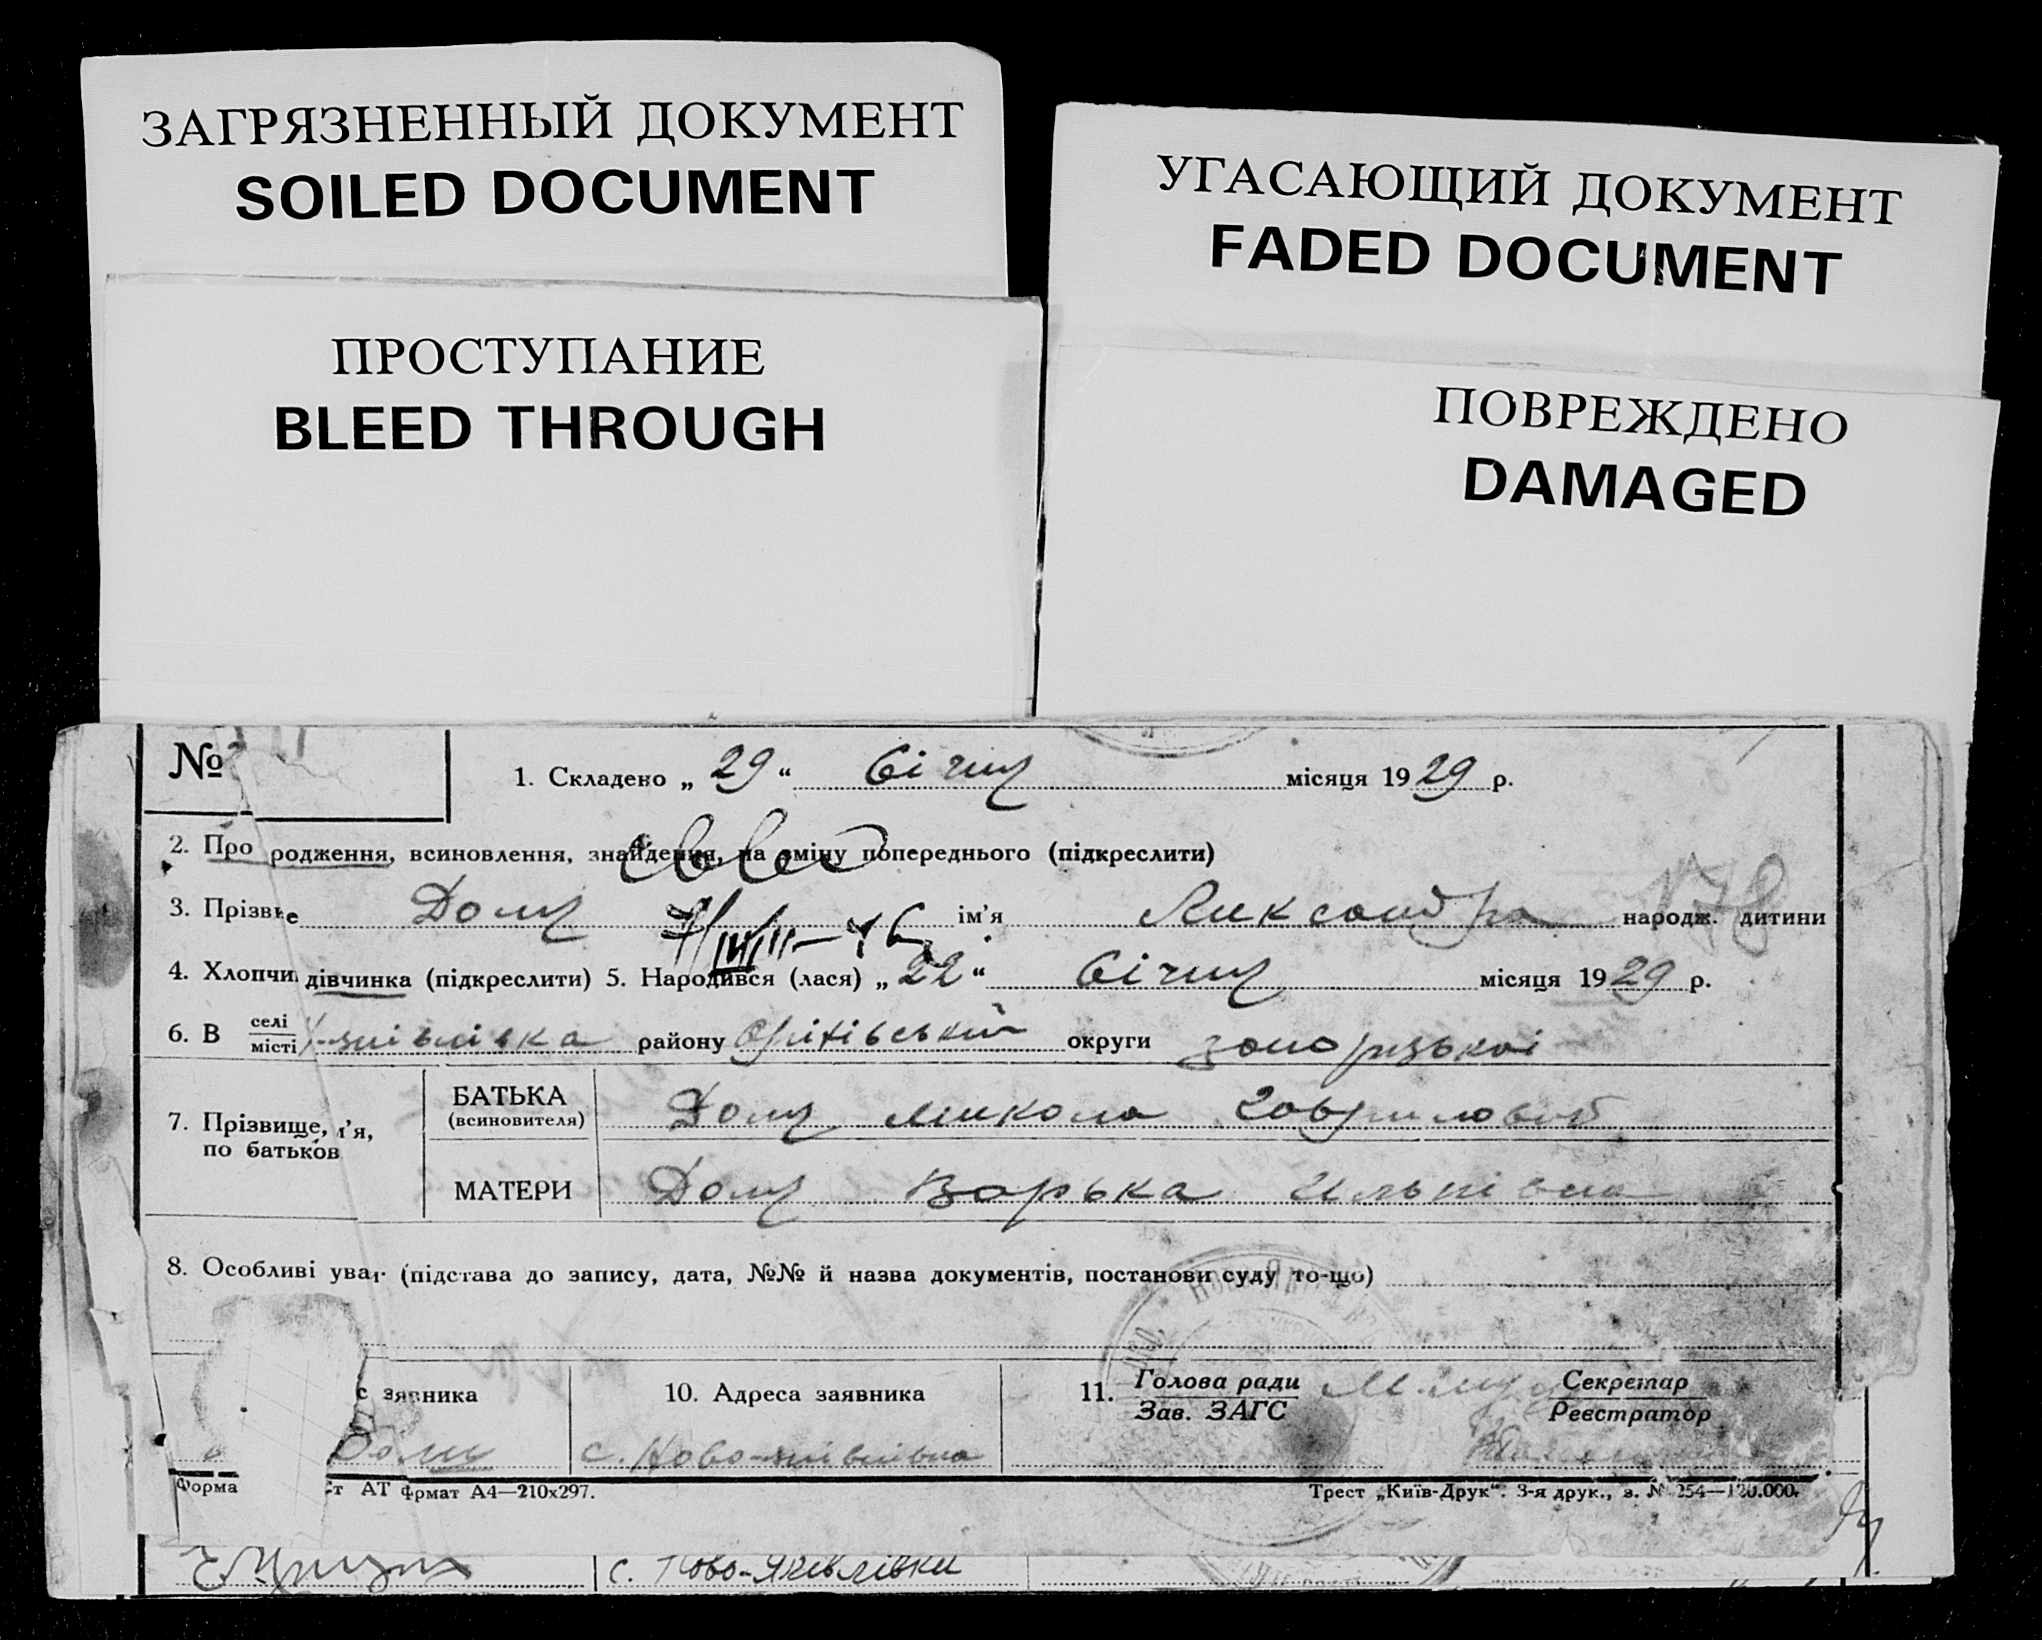 ЗАГРЯЗНЕННЫЙ ДОКУМЕНТ
SOILED DOCUMENT
УГАСАЮЩИЙ ДОКУМЕНТ
FADED DOCUMENT
ПРОСТУПАНИЕ
BLEED THROUGH
ПОВРЕЖДЕНО
DAMAGED
№
1. Складено „ 29 “ Січня місяця 1929 р.
2. Про родження, всиновлення, знайдення, на зміну попереднього (підкреслити)
3. Прізвꞏе Доля ім'я Александра народж. дитини
178
4. Хлопчи дівчинка (підкреслити) 5. Народився (лася) „ 22 “ Січня місяця 1929 р.
6. В селі
місті району Оріхівський округи запорізькоі
7. Прізвище, м'я,
по батьков
БАТЬКА
(всиновителя) Доля микола Гаврилович
МАТЕРИ Доля Варька
8. Особливі уваг (підстава до запису, дата, №№ й назва документів, постанови суду то-що)
с заявника
10. Адреса заявника
11. Голова ради
Зав. ЗАГС
Секретар
Реєстратор
Доля
с. Ново-яківлівка
Форма
Ст АТ фрмат А4—210х297.
Трест „Київ-Друк“. 3-я друк., з. № 254—120.000.
с. Ново-Яківлівки